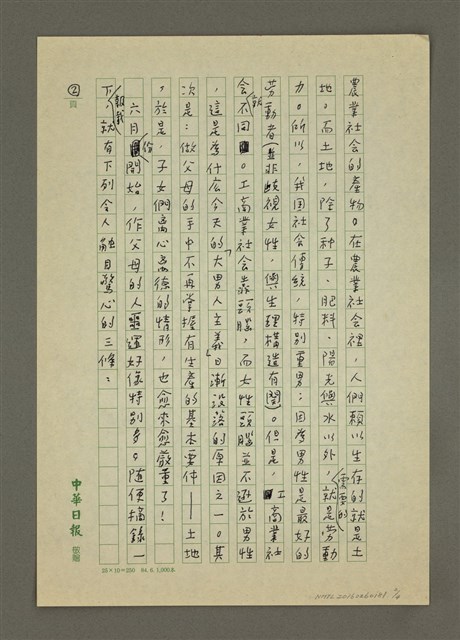 農業社會的產物。在農業社會裡,人們賴以生存的就是土
地。而土地,除了種子、肥料、陽光與水以外,需要的就是勞動
力。所以,我國社會傳統,特別重男:因為男性是最好的
勞動者(並非歧視女性,與生理構造有關)。但是,工商業社
會就不同。工商業社會靠頭腦,而女性頭腦並不遜於男性
,這是為什麼今天的「大男人主義」日漸沒落的原因之一。其
次是:做父母的手中不再掌握有生產的基本要件——土地
,於是,子女們離心離德的情形,也愈來愈嚴重了!
六月份開始,作父母的人靈運好像特別多。隨便摘錄一
下報載,就有下列令人觸目驚心的三條:
②頁
中華日報 敬贈
25×10=250 84.6.1,000本